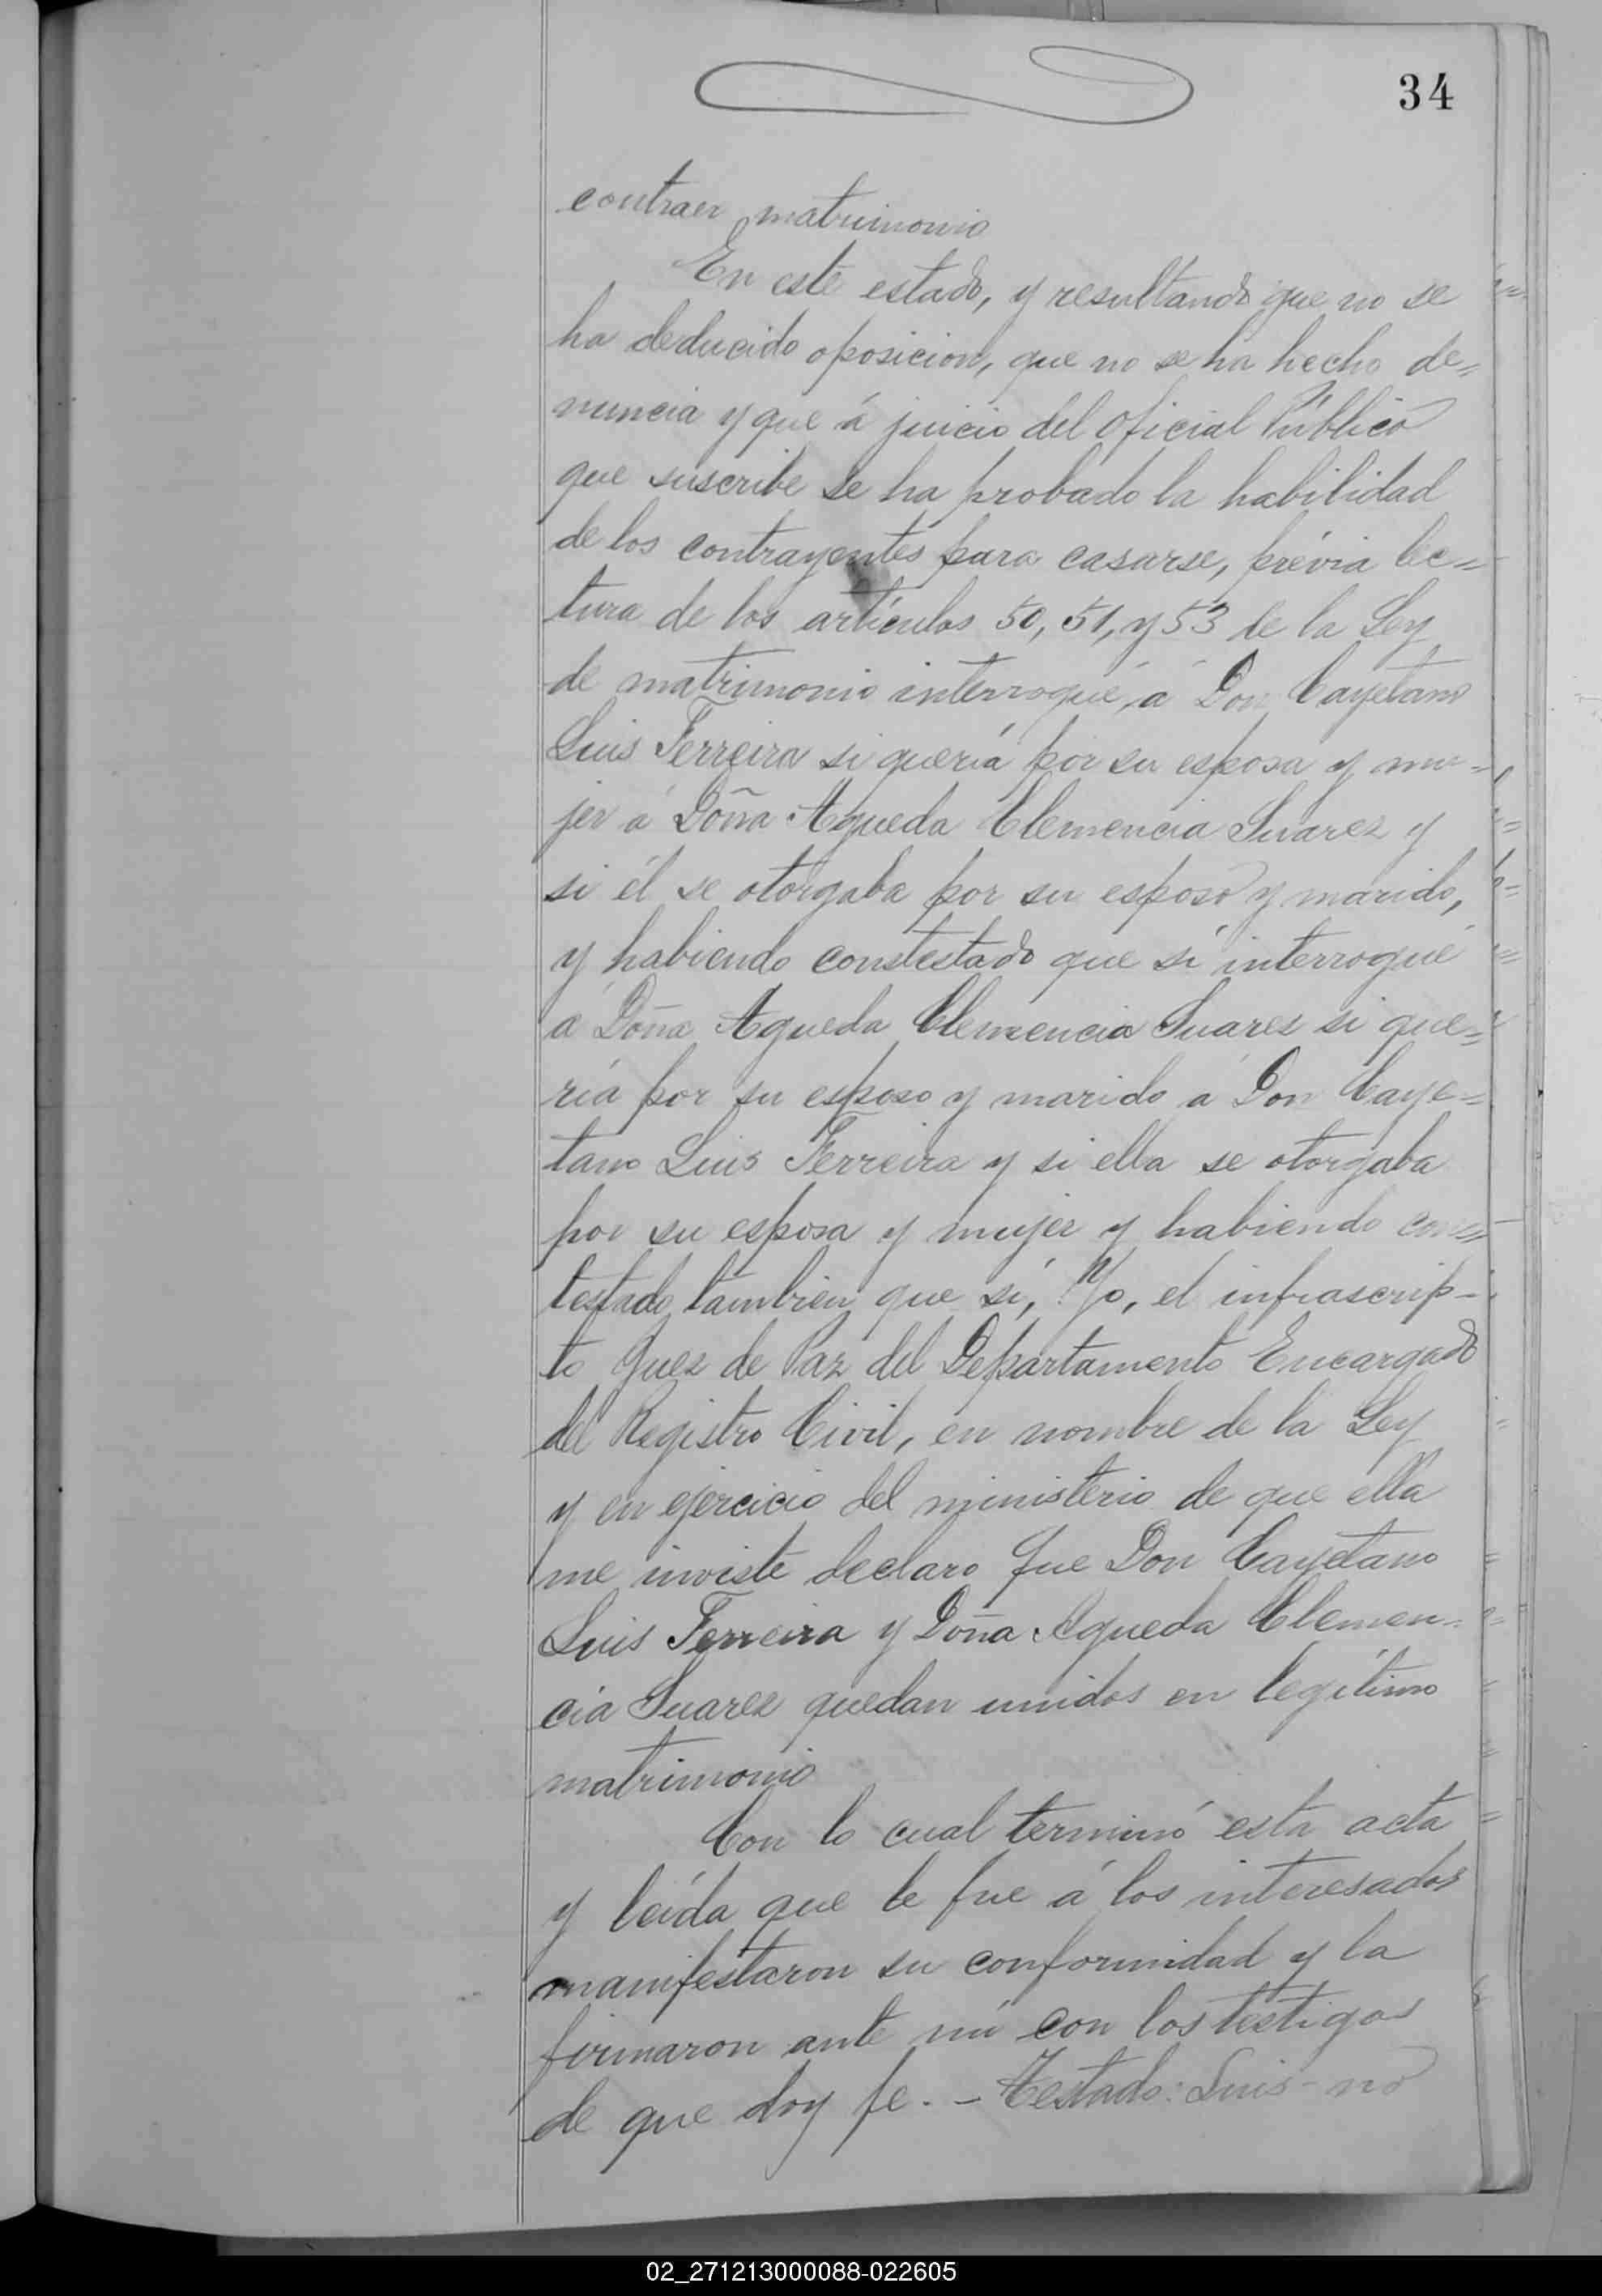 34
contraer matrimonio
En este estado, y resultando que no se
ha deducido oposicion, que no se ha hecho de=
nuncia y que á juicio del Oficial Público
que suscribe se ha probado la habilidad
de los contrayentes para casarse, prévia lec=
tura de los artículos 50, 51, y 53 de la Ley
de matrimonio interrogué á Don Cayetano
Luis Ferreira si quería por su esposa y mu=
jer á Doña Agueda Clemencia Suarez y
si él se otorgaba por su esposo y marido,
y habiendo constestado que sí interrogué
a Doña Agueda Clemencia Suarez si que=
ría por su esposo y marido á Don Caye=
tano Luis Ferreira y si ella se otorgaba
por su esposa y mujer y habiendo con=
testado tambien que sí, Yo, el infrascrip-
to Juez de Paz del Departamento Encargado
del Registro Civil, en nombre de la Ley
y en ejercicio del ministerio de que ella
me inviste declaro que Don Cayetano
Luis Ferreira y Doña Agueda Clemen=
cia Suarez quedan unidos en legítimo
matrimonio
Con lo cual terminó esta acta
y leída que le fue á los interesados
manifestaron su conformidad y la
firmaron ante mí con los testigos
de que doy fe. - Testado: Luis - no
02_271213000088-022605